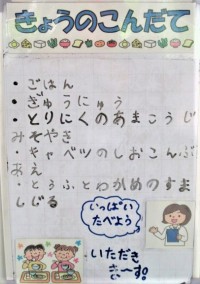 きょうのこんだて
・ごはん
・ぎゅうにゅう
・とりにくのあまこうじ
みそやき
・キャベツのしおこんぶ
あえ
・とうふとわかめのすま
しじる
いっぱい
たべよう
いただき
まーす!